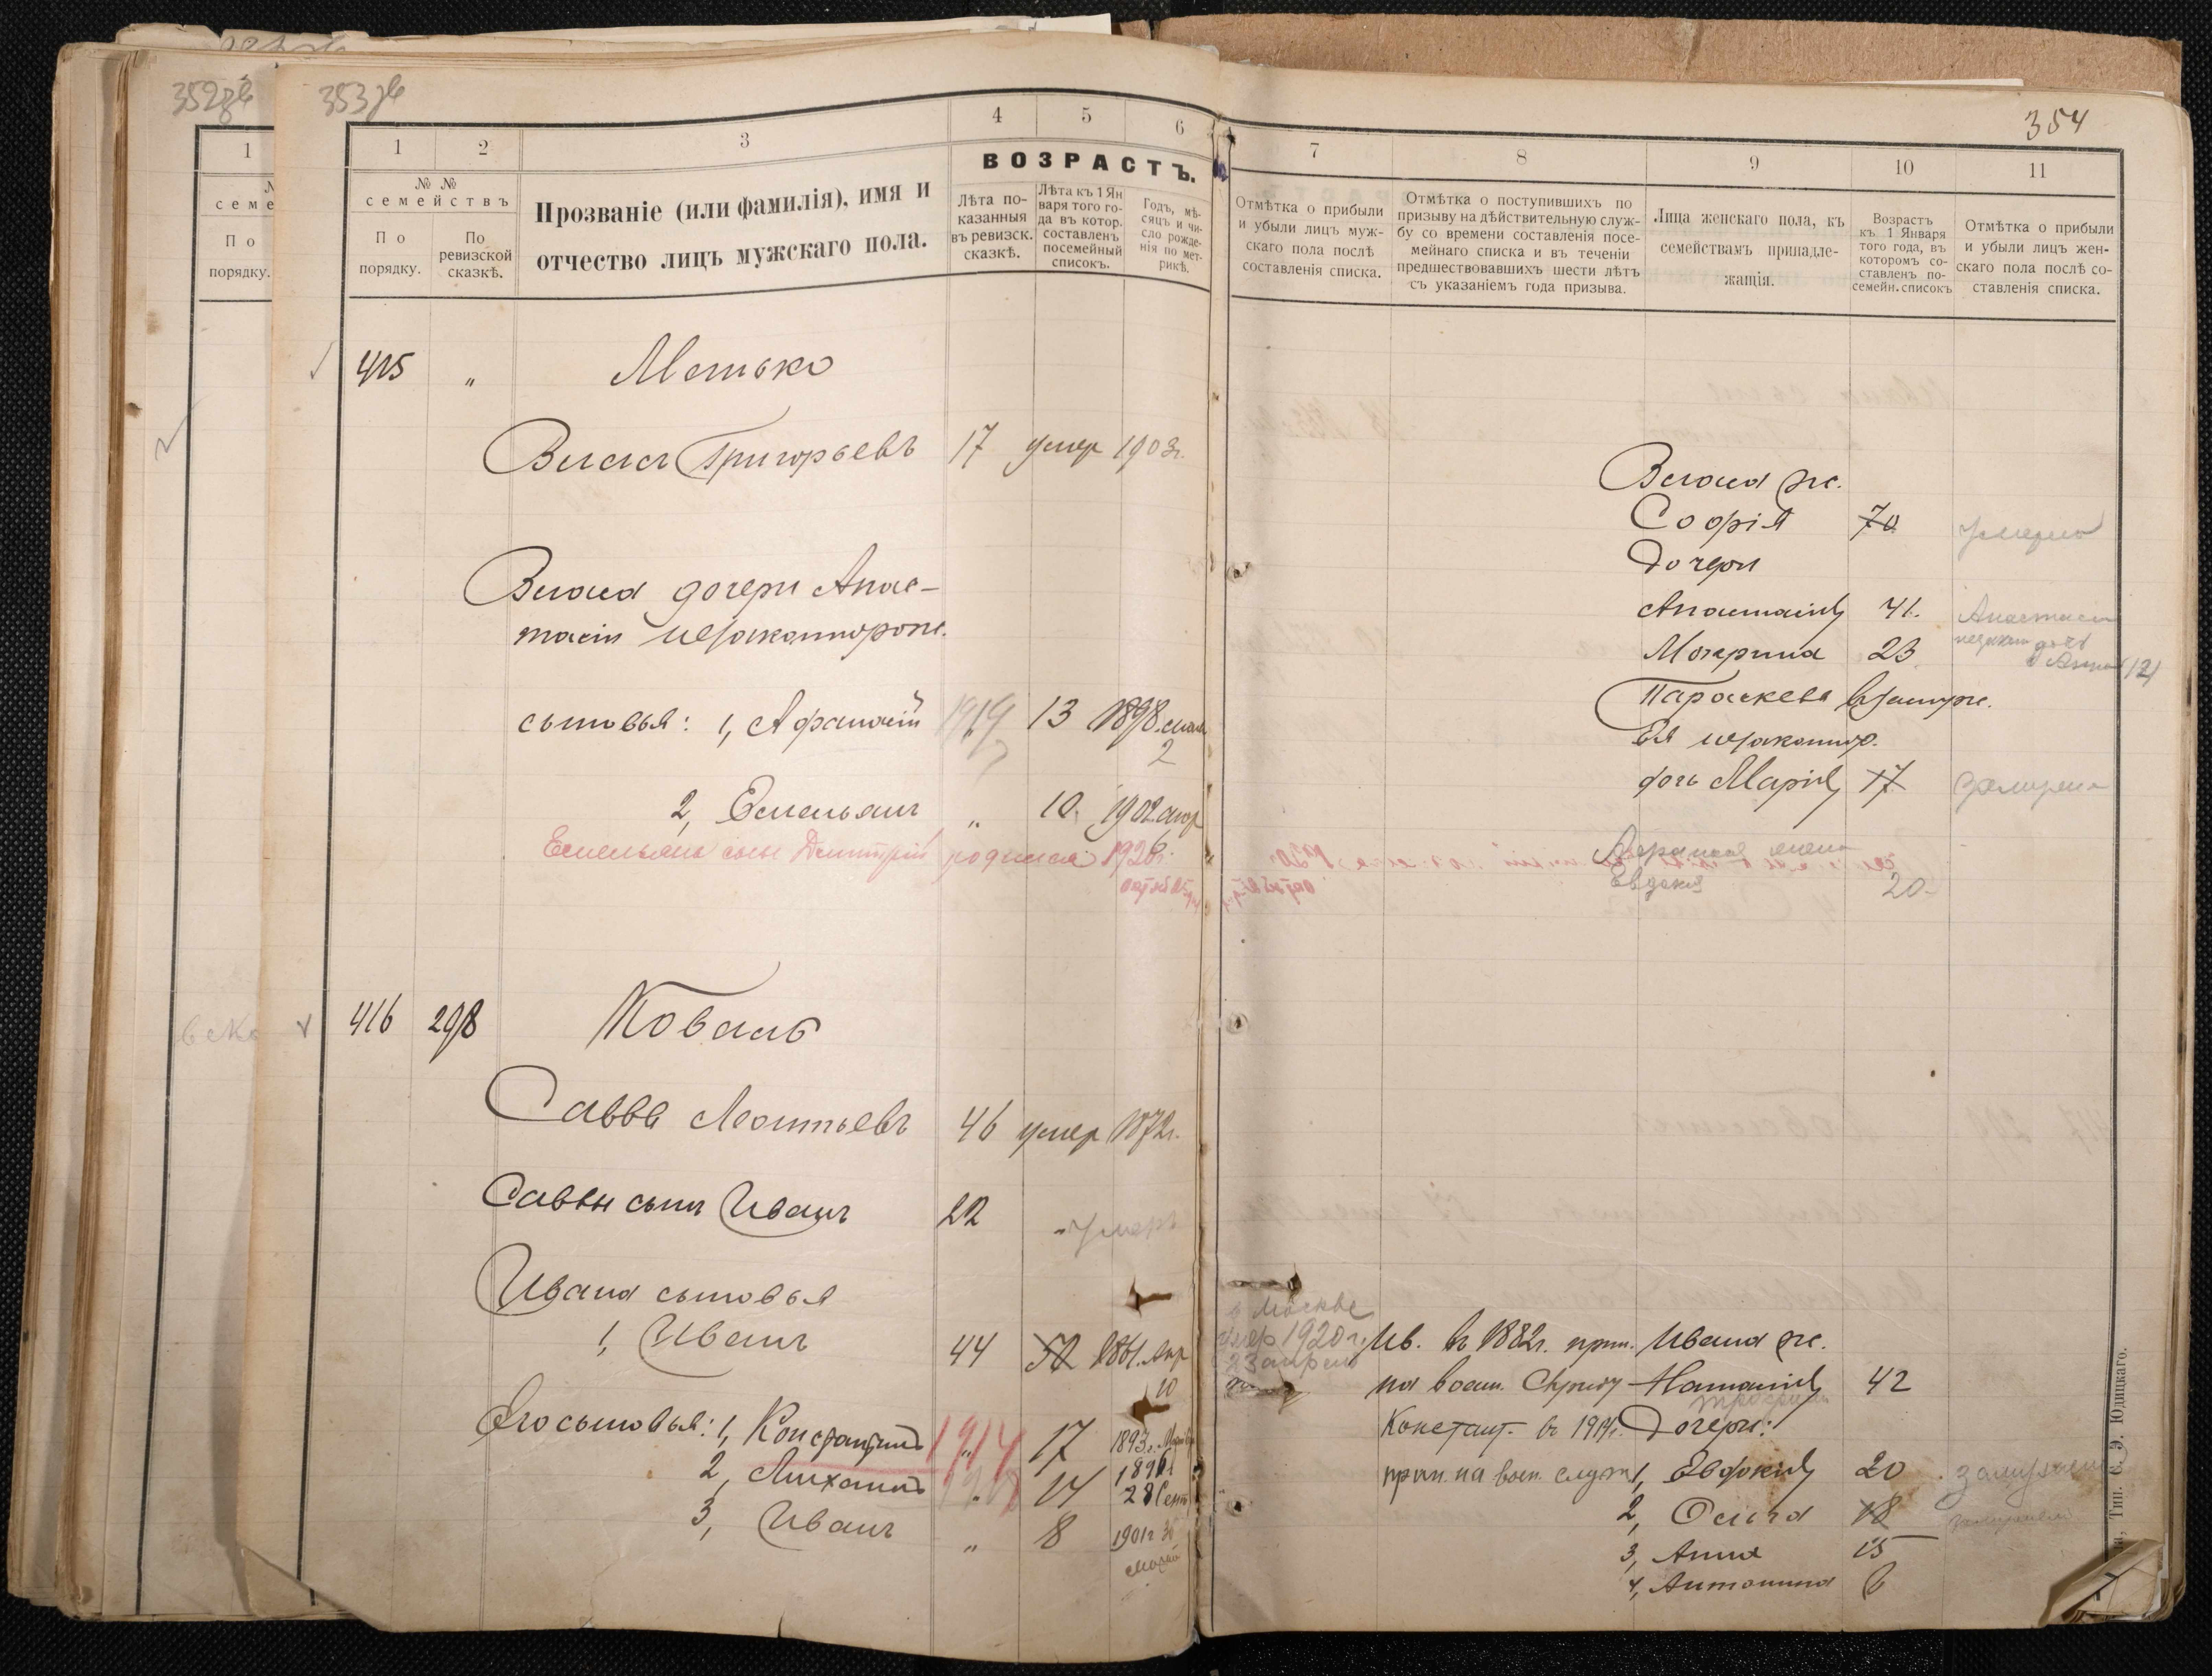 352зв
353зв
354
1
2
3
4
5
6
ВОЗРАСТЪ.
№ №
семействъ
По
порядку.
По
ревизской
сказкѣ.
Прозваніе (или фамилія), имя и
отчество лицъ мужскаго пола.
Лѣта по-
казанныя
въ ревизск.
сказкѣ.
Лѣта къ 1 Ян
варя того го-
да въ котор.
составленъ
посемейный
списокъ.
Годъ, мѣ-
сяцъ и чи-
сло рожде-
нія по мет-
рикѣ.
415 „ Метько
Власъ Григорьевъ 17 умер 1903г.
Власа дочери Анас-
тасіи незаконнорож.
сыновья: 1, Афанасій 1919 13 1898
2
2, Емельянъ „ 10. 1902
6
Емельяна сынъ Дмитрій родился 1920г.
416 298 Коваль
Савва Леонтьевъ 46 умер 1872г.
Саввы сынъ Иванъ 22 умеръ
Ивана сыновья
1, Иванъ 44 52 1861. Апр
10
Его сыновья: 1, Константинъ 1914 17 1893г.
2, Михаилъ „ 14 1896
28 Сент
3, Иванъ „ 8 1901г
7
8
9
10
11
Отмѣтка о прибыли
и убыли лицъ муж-
скаго пола послѣ
составленія списка.
Отмѣтка о поступившихъ по
призыву на дѣйствительную служ-
бу со времени составленія посе-
мейнаго списка и въ теченіи
предшествовавшихъ шести лѣтъ
съ указаніемъ года призыва.
Лица женскаго пола, къ
семействамъ принадле-
жащія.
Возрастъ
къ 1 Января
того года, въ
которомъ со-
ставленъ по-
семейн. списокъ
Отмѣтка о прибыли
и убыли лицъ жен-
скаго пола послѣ со-
ставленія списка.
Власа ж.
Софія 70 умерла
Дочери
Анастасія 41. Анастасіи
Катерина 23
Параскева взамуж.
Ея незаконнор.
дочь Марія 17 замужем
Афанасія жена
Евдокія 20
в Москве
умер 1920г.
23 апреля
Ив. въ 1882г. прин. Ивана ж.
на воен. службу Наталія 42
Констант. въ 1914г. Дочери:
прин. на воен. служ 1, Евдокія 20 замужем
2, Ольга 18 замужем
3, Анна 15
4, Антонина 6
Тип. С. Э. Юдицкаго.